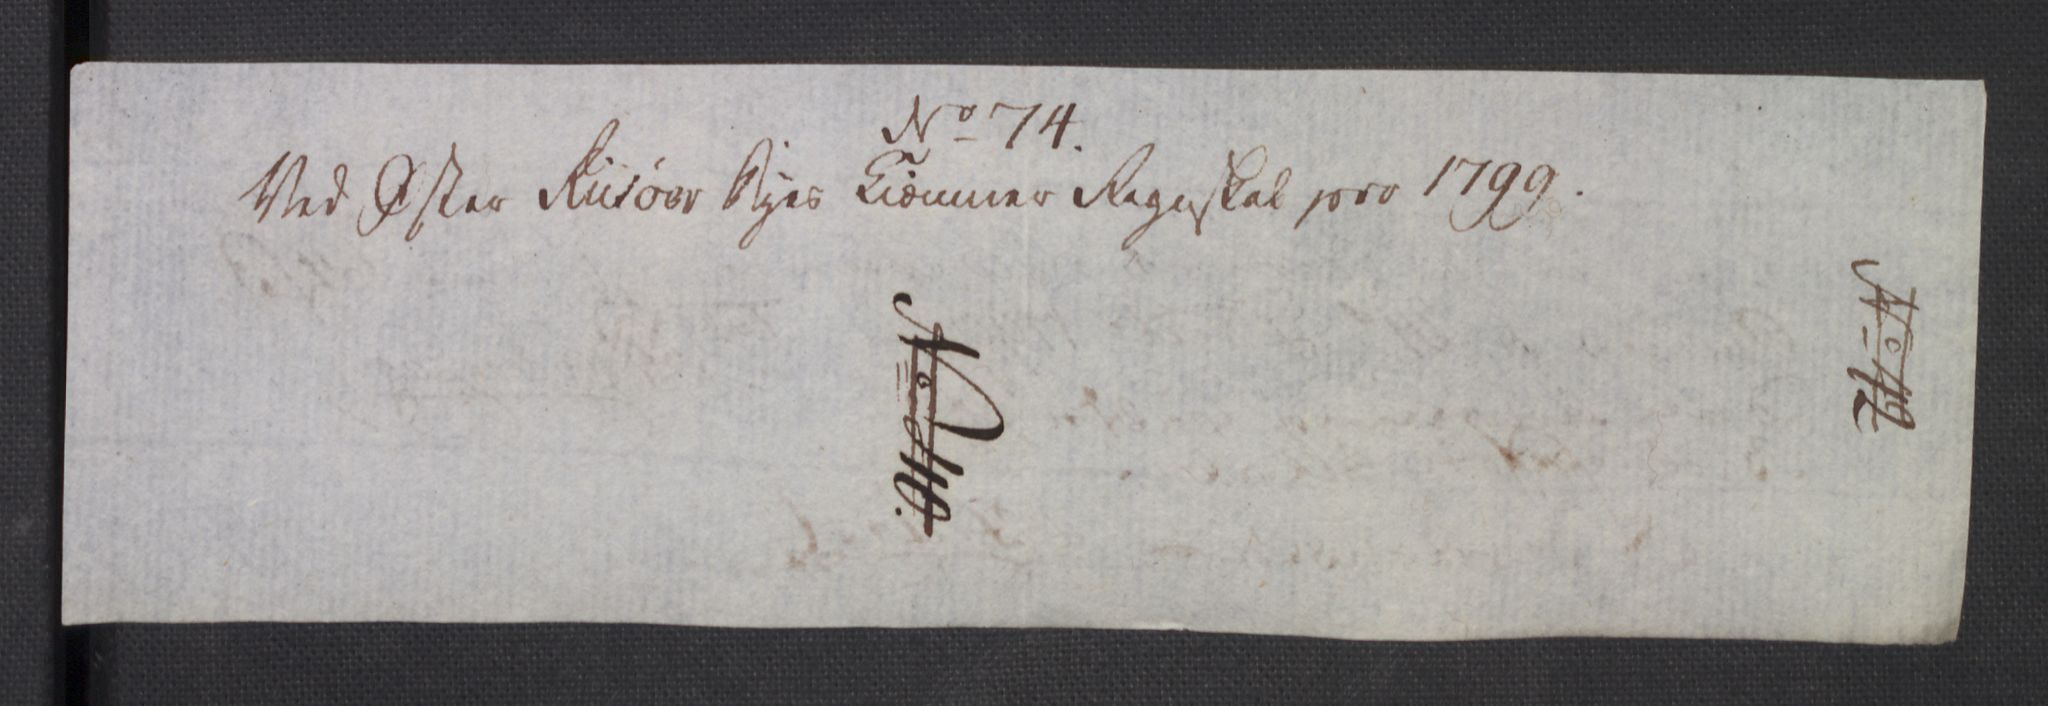 No 74.
Ved Øster Riisöer Byes Kiemner Regnskab pro 1799.
No
No